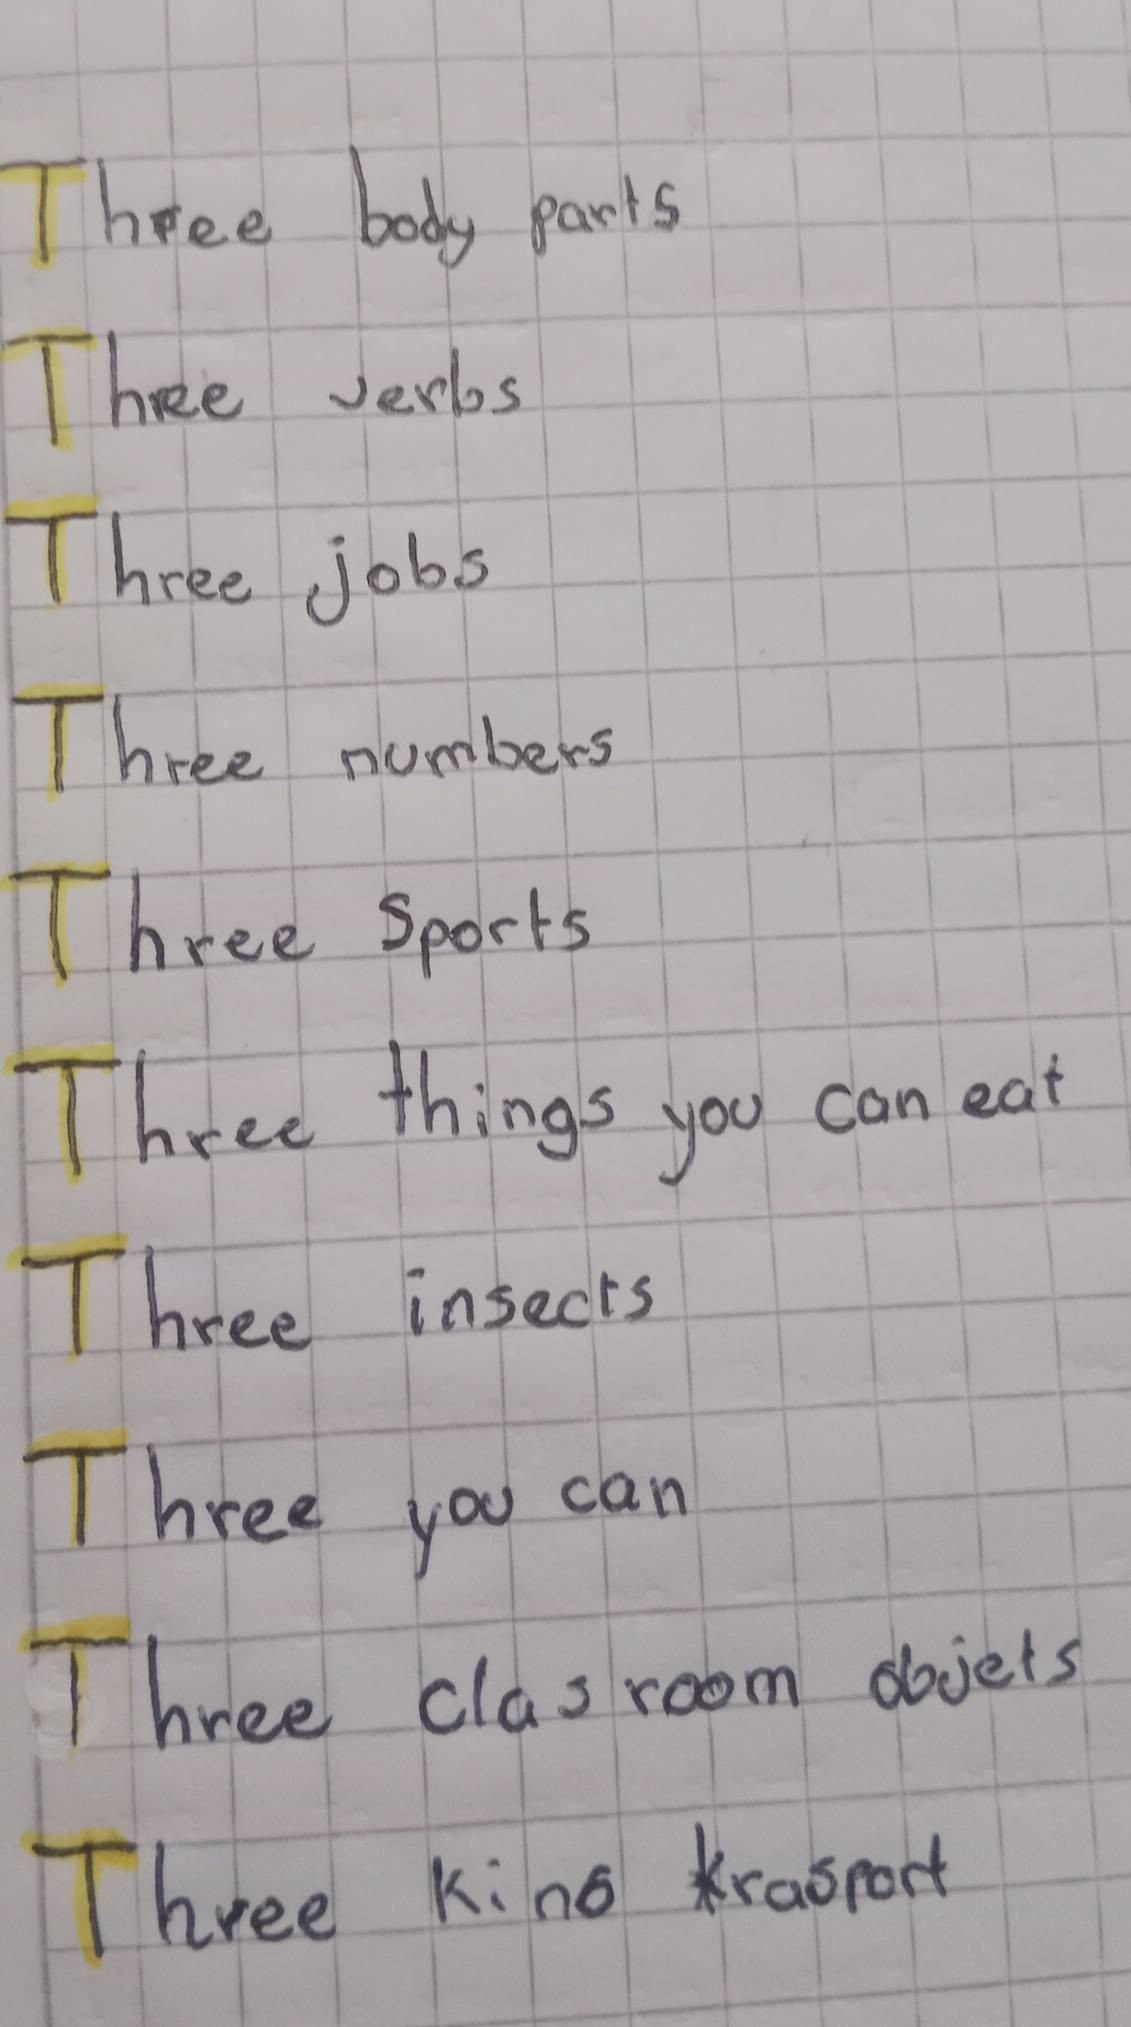 Three body parts
Three verbs
Three jobs
Three numbers
Three sports
Three things you can eat
Three insects
Three you can
Three clas room objets
Three kino krasport